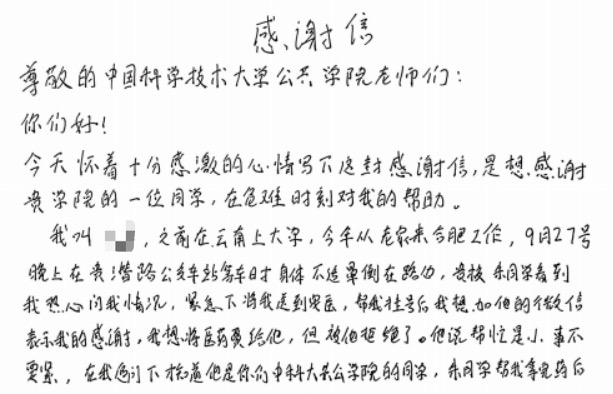 感谢信
尊敬的中国科学技术大学公共学院老师们：
你们好！
今天怀着十分感激的心情写下这封感谢信，是想感谢
贵学院的一位同学，在危难时刻对我的帮助。
我叫，之前在云南上大学，今年从老家来合肥工作，9月27号
晚上在黄潜路公交车站等车时身体不适晕倒在路边，贵校朱同学看到
我热心问我情况，紧急下将我送到安医，帮我挂号后我想加他的微信
表示我的感谢，我想将医药费给他，但被他拒绝了。他说帮忙是小事不
要紧，在我追问下知道他是你们中科大公共学院的同学，朱同学帮我拿完药后